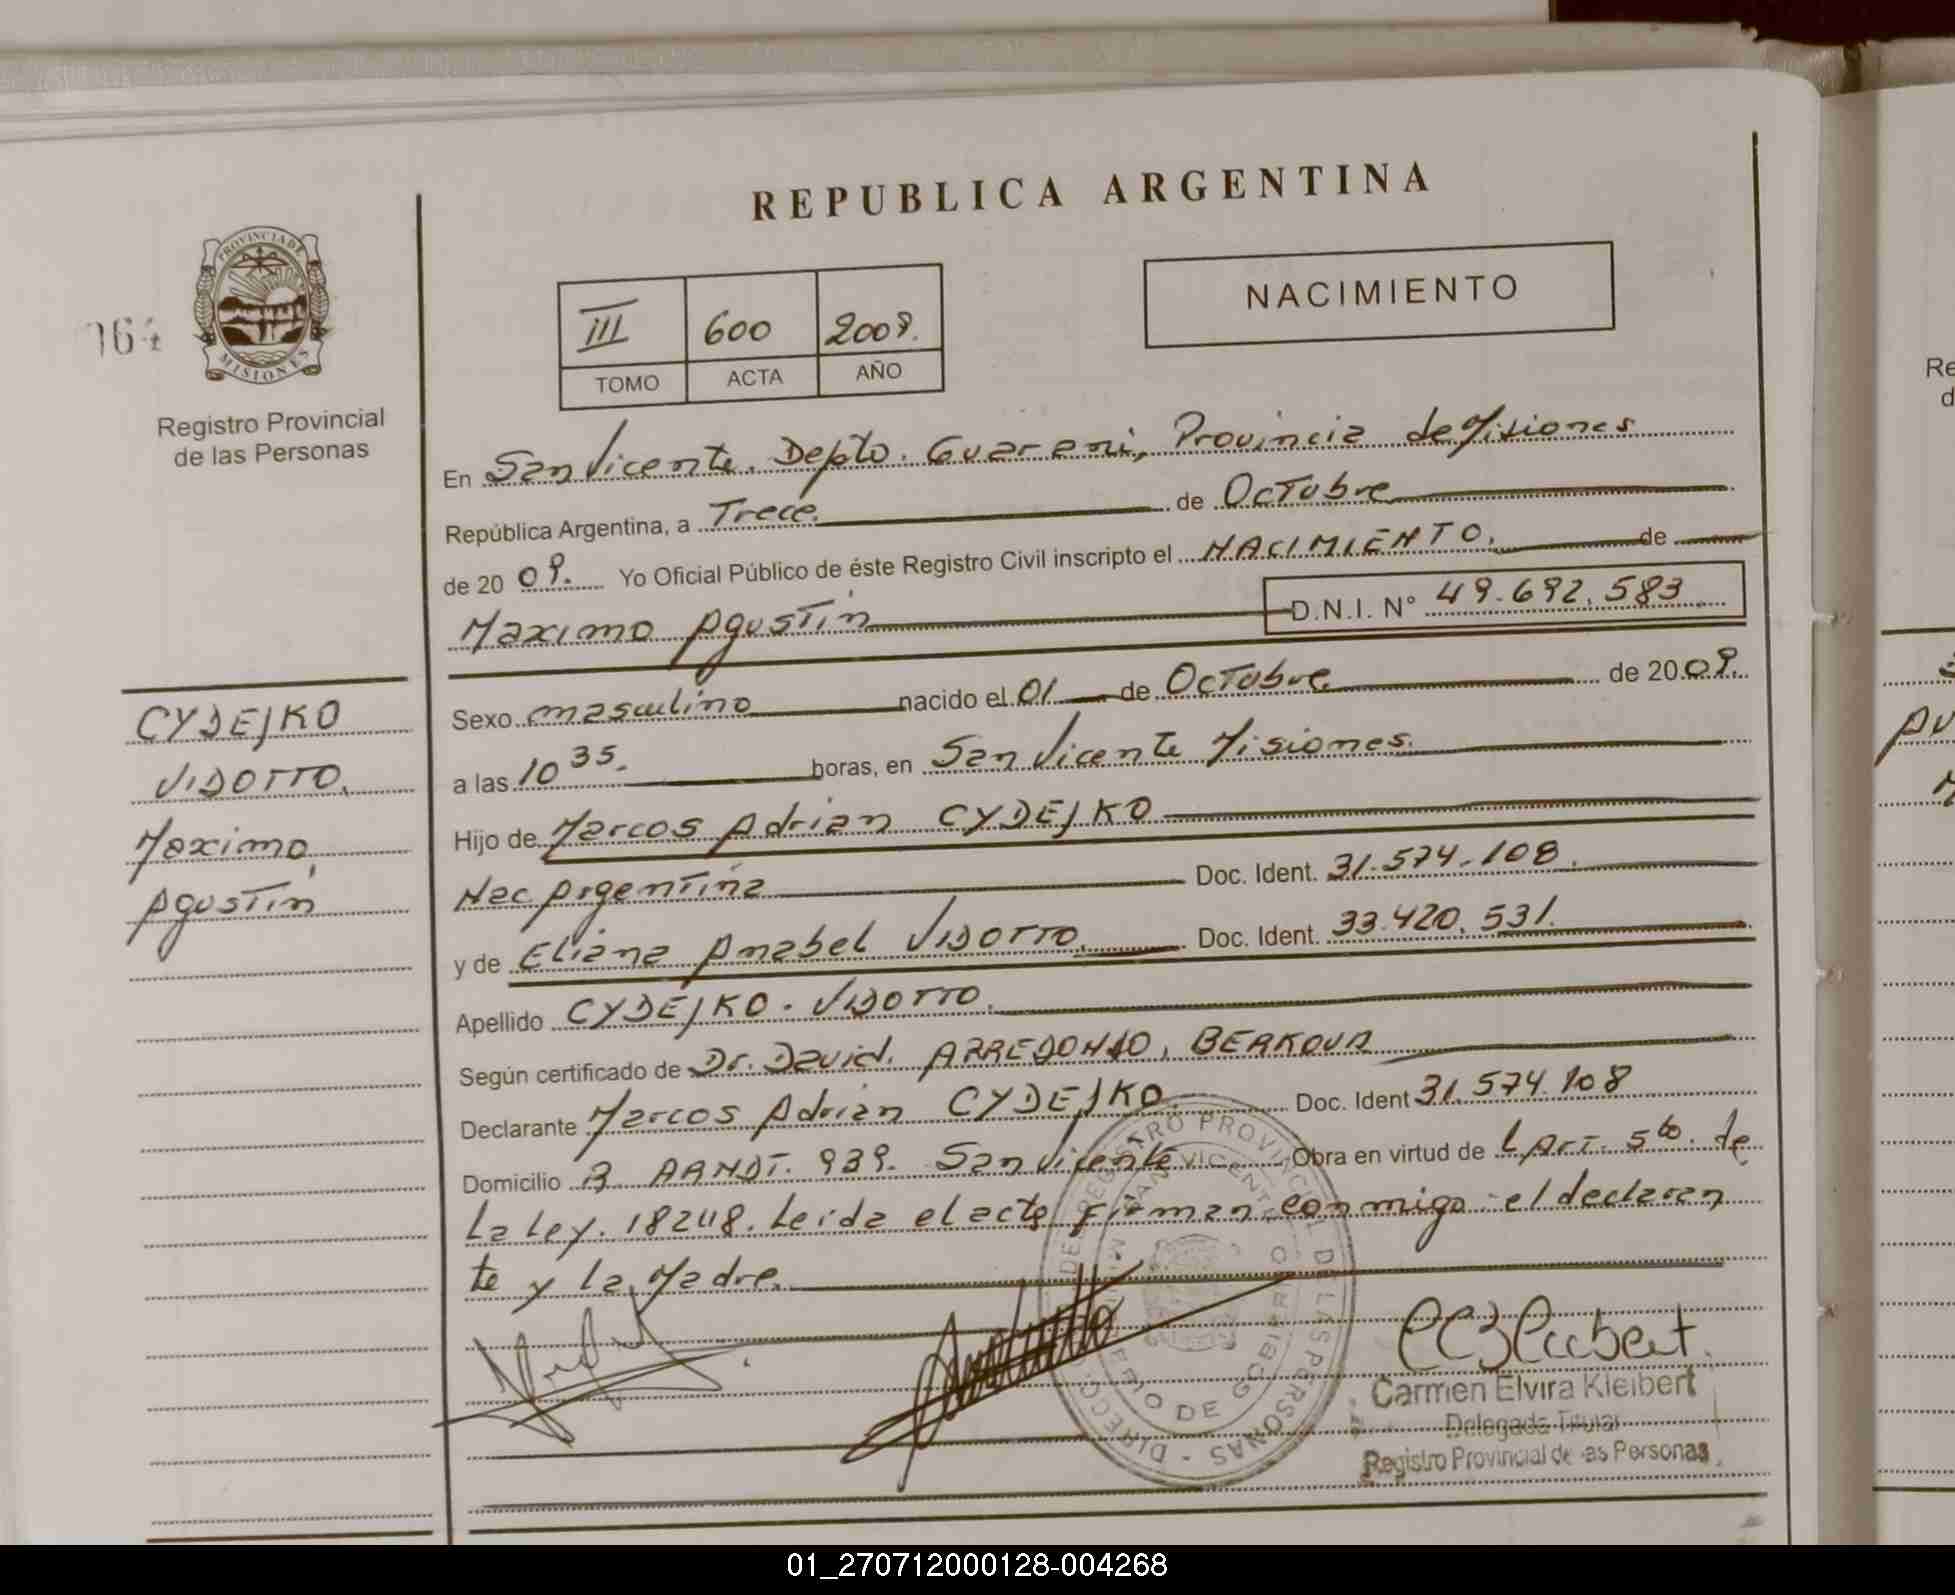 REPUBLICA ARGENTINA
PROVINCIA DE
MISIONES
Registro Provincial
de las Personas
NACIMIENTO
III 600 2009.
TOMO ACTA AÑO
En San Vicente. Depto. Guarani, Provincia de Misiones
República Argentina, a Trece. de Octubre
de 20 09. Yo Oficial Público de éste Registro Civil inscripto el NACIMIENTO. de
Maximo Agustin D.N.I. N° 49.692.583
Sexo masculino nacido el 01 de Octubre de 2009.
a las 10 35. horas, en San Vicente Misiones.
Hijo de Marcos Adrian CYDEJKO
Nac Argentina Doc. Ident. 31.574.108.
y de Eliana Anabel VIDOTTO. Doc. Ident. 33.420.531.
Apellido CYDEJKO - VIDOTTO.
Según certificado de Dr. David. ARREDONDO, BERKOVA
Declarante Marcos Adrian CYDEJKO. Doc. Ident 31.574.108
Domicilio B ARNDT. 939. San Vicente Obra en virtud de L Art. 5to. de
La Ley. 18248. Leida el acta Firman conmigo el declaran
te y la Madre.
CYDEJKO
VIDOTTO.
Maximo,
Agustin
Carmen Elvira Kleibert
Delegada Titular
Registro Provincial de las Personas
01_270712000128-004268